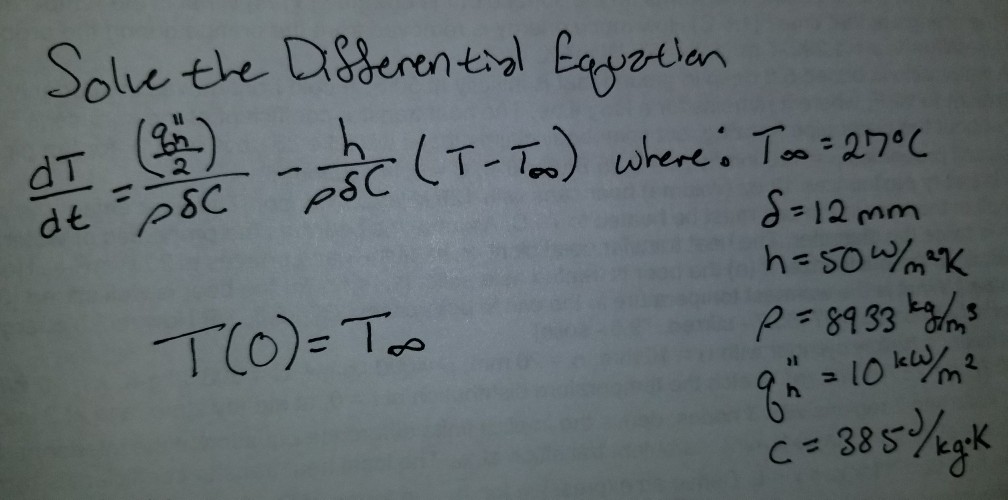 Solve the Differential Equation
dT/dt = (q''h/2)/ρδC - h/ρδC (T - T∞) where: T∞ = 27°C
δ = 12 mm
h = 50 W/m²K
T(0) = T∞
ρ = 8933 kg/m³
q''h = 10 kW/m²
C = 385 J/kg·K